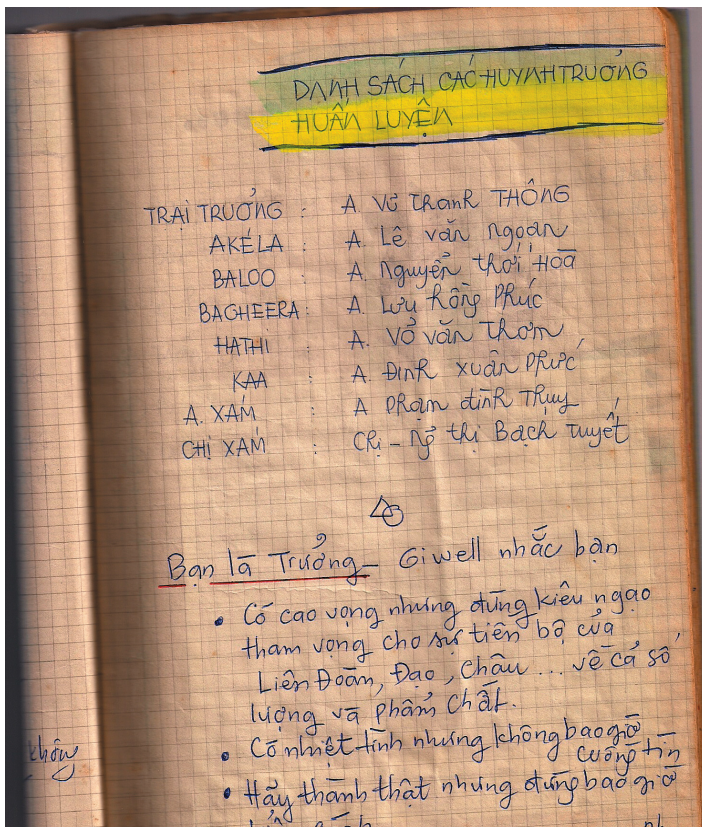 DANH SÁCH CÁC HUYNH TRƯỞNG
HUẤN LUYỆN
TRẠI TRƯỞNG : A. Vũ Thanh THÔNG
AKÉLA : A. Lê văn Ngoạn
BALOO : A. Nguyễn thới Hoà
BAGHEERA : A. Lưu hồng Phúc
HATHI : A. Võ văn Thơm
KAA : A. Đinh xuân Phức
A. XÁM : A Phạm đình Thụy
CHỊ XÁM : Chị – Ng thị Bạch Tuyết
Bạn là Trưởng – Giwell nhắc bạn
• Có cao vọng nhưng đừng kiêu ngạo
tham vọng cho sự tiến bộ của
Liên Đoàn, Đạo, Châu ... về cả số
lượng và phẩm chất.
• Có nhiệt tình nhưng không bao giờ
cuồng tín
• Hãy thành thật nhưng đừng bao giờ
không